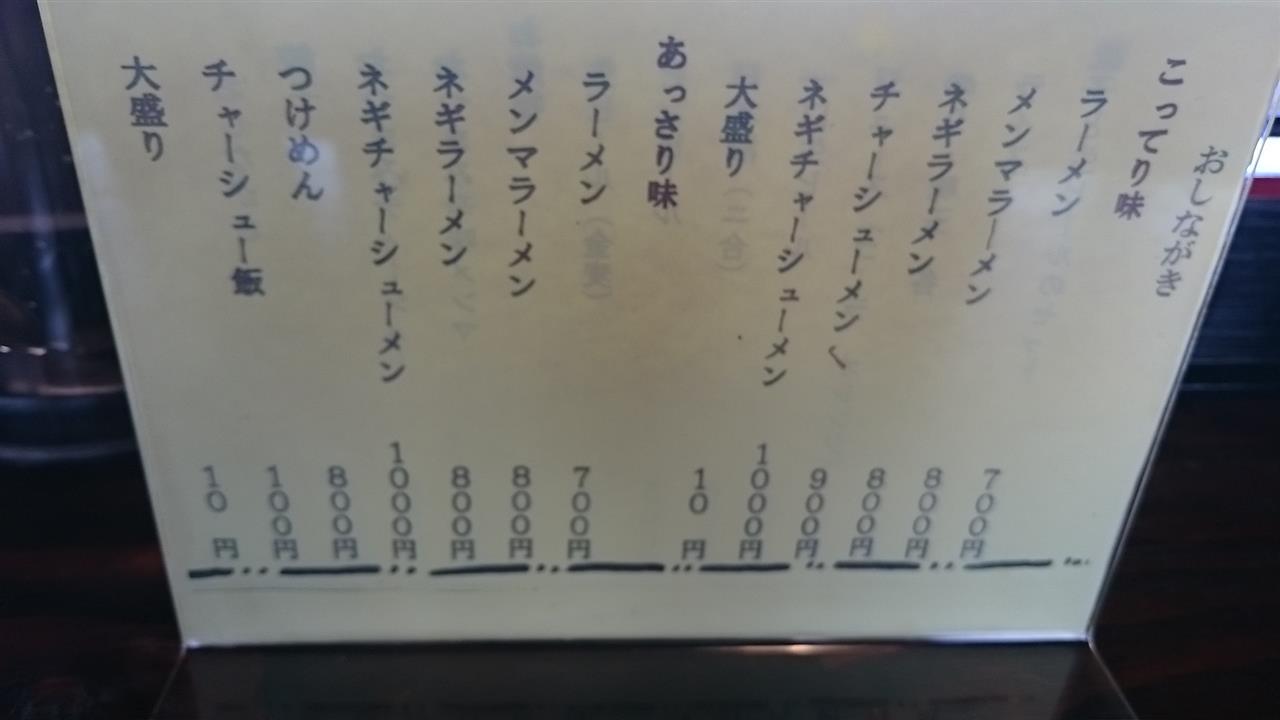 おしながき
こってり味
ラーメン 700円
メンマラーメン 800円
ネギラーメン 800円
チャーシューメン 900円
ネギチャーシューメン 1000円
大盛り 10 円
あっさり味
ラーメン 700円
メンマラーメン 800円
ネギラーメン 800円
ネギチャーシューメン 1000円
つけめん 800円
チャーシュー飯 100円
大盛り 10 円